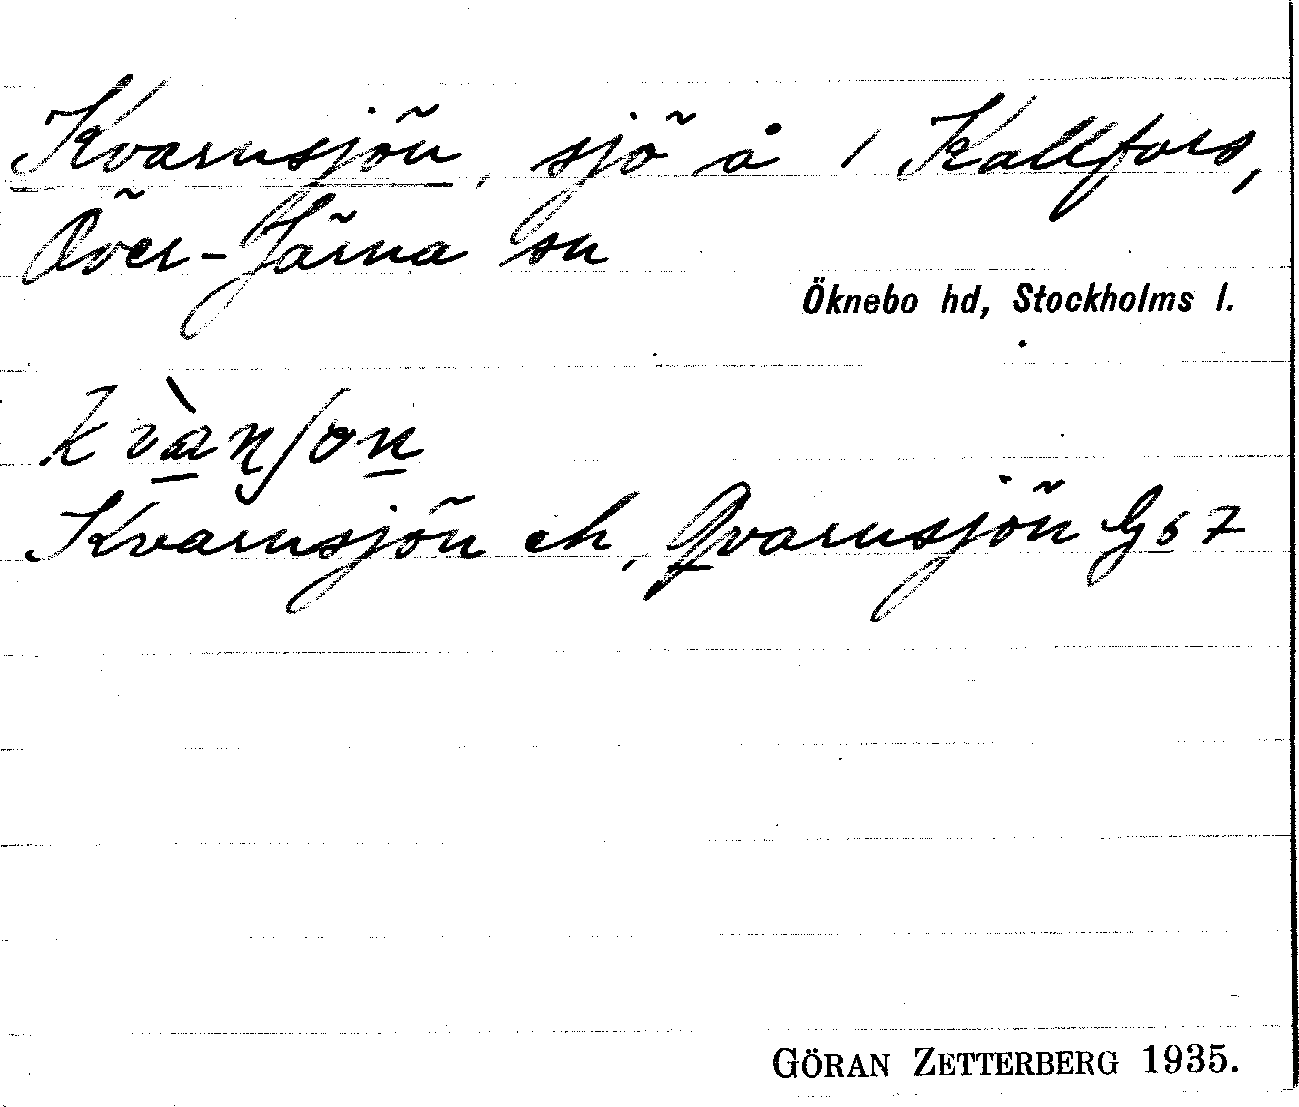 Kvarnsjön, sjö å 1 Kallfors,
Över-Järna sn
Öknebo hd, Stockholms l.
Kvarnsjön ek, Qvarnsjön G 67
GÖRAN ZETTERBERG 1935.